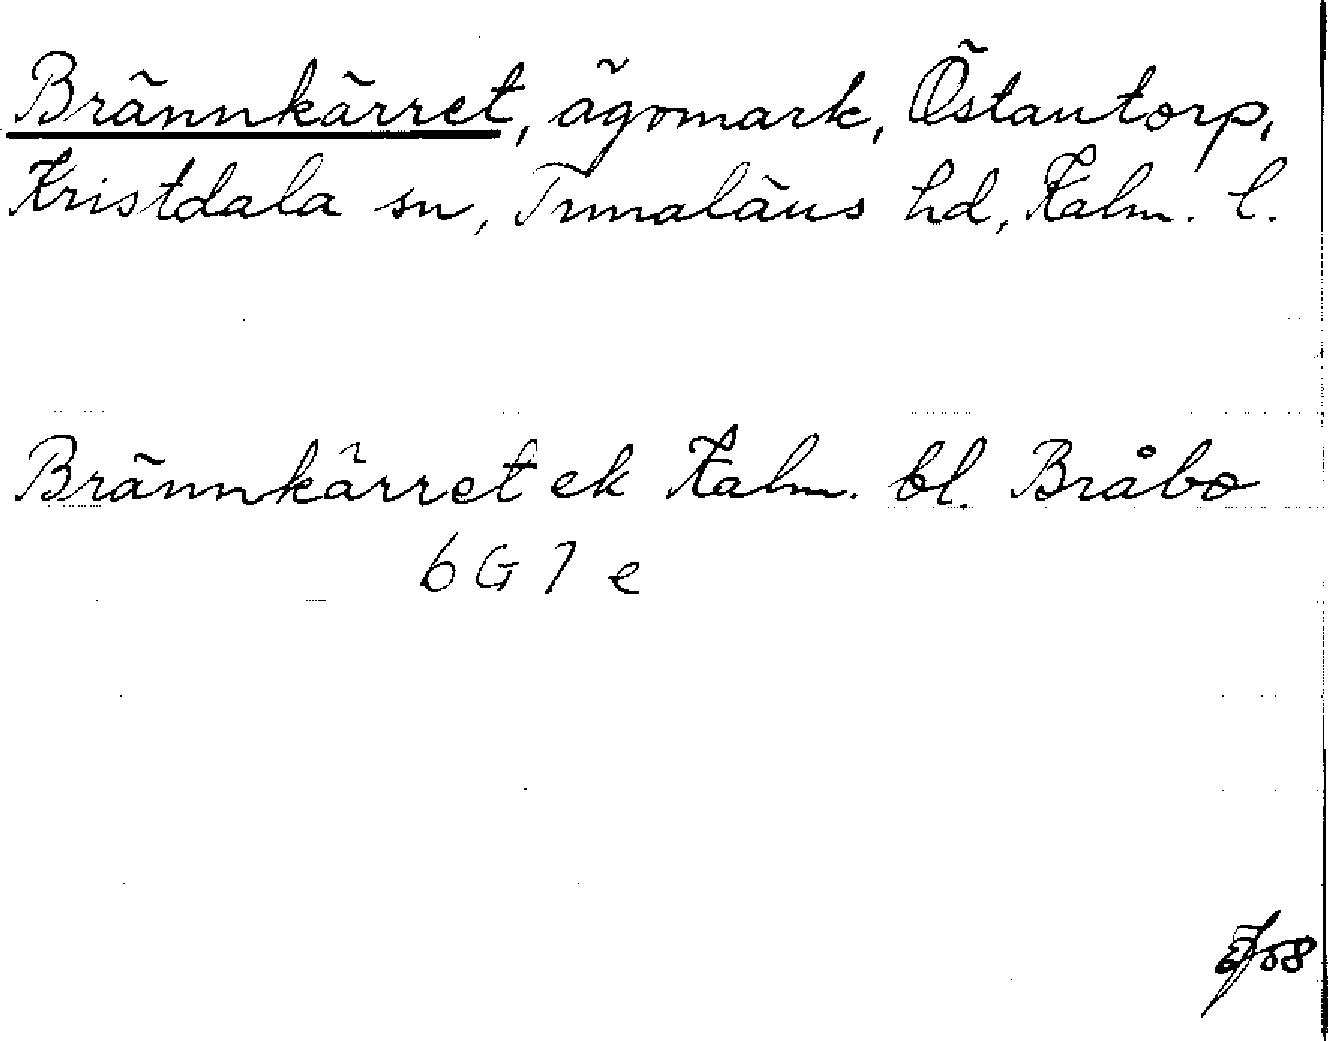 Brännkärret, ägomark, Östantorp,
Kristdala sn, Tunaläns hd, Kalm. l.
Brännkärret ek Kalm. bl. Bråbo
6 G 7 e
58